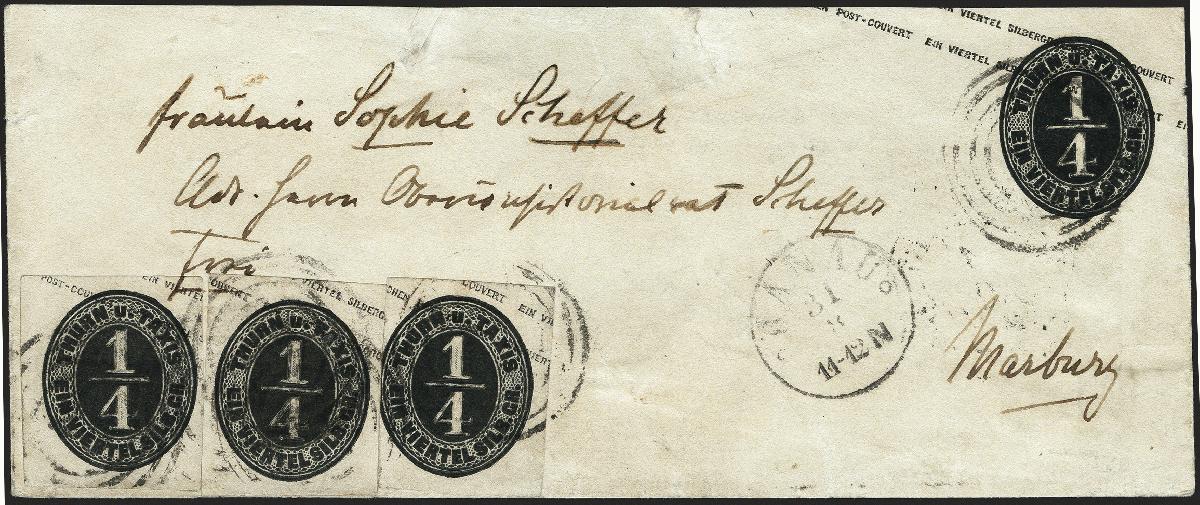 EIN VIERTEL SILBERGR
POST-COUVERT EIN VIERTEL SILB
COUVERT
THURN U. TAXIS
1/4
EIN VIERTEL SILB. GR.
fräulein Sophie Scheffer
Adr. Herrn Oberconsistorialrat Scheffer
frei
HANAU
31
8
11-12 N
Marburg
POST-COUV
EIN VIERTEL
COUVERT
THURN U. TAXIS
1/4
EIN VIERTEL SILB. GR.
EIN VIERTEL SILBERG
THURN U. TAXIS
1/4
EIN VIERTEL SILB. GR.
COUVERT EIN VI
THURN U. TAXIS
1/4
EIN VIERTEL SILB. GR.